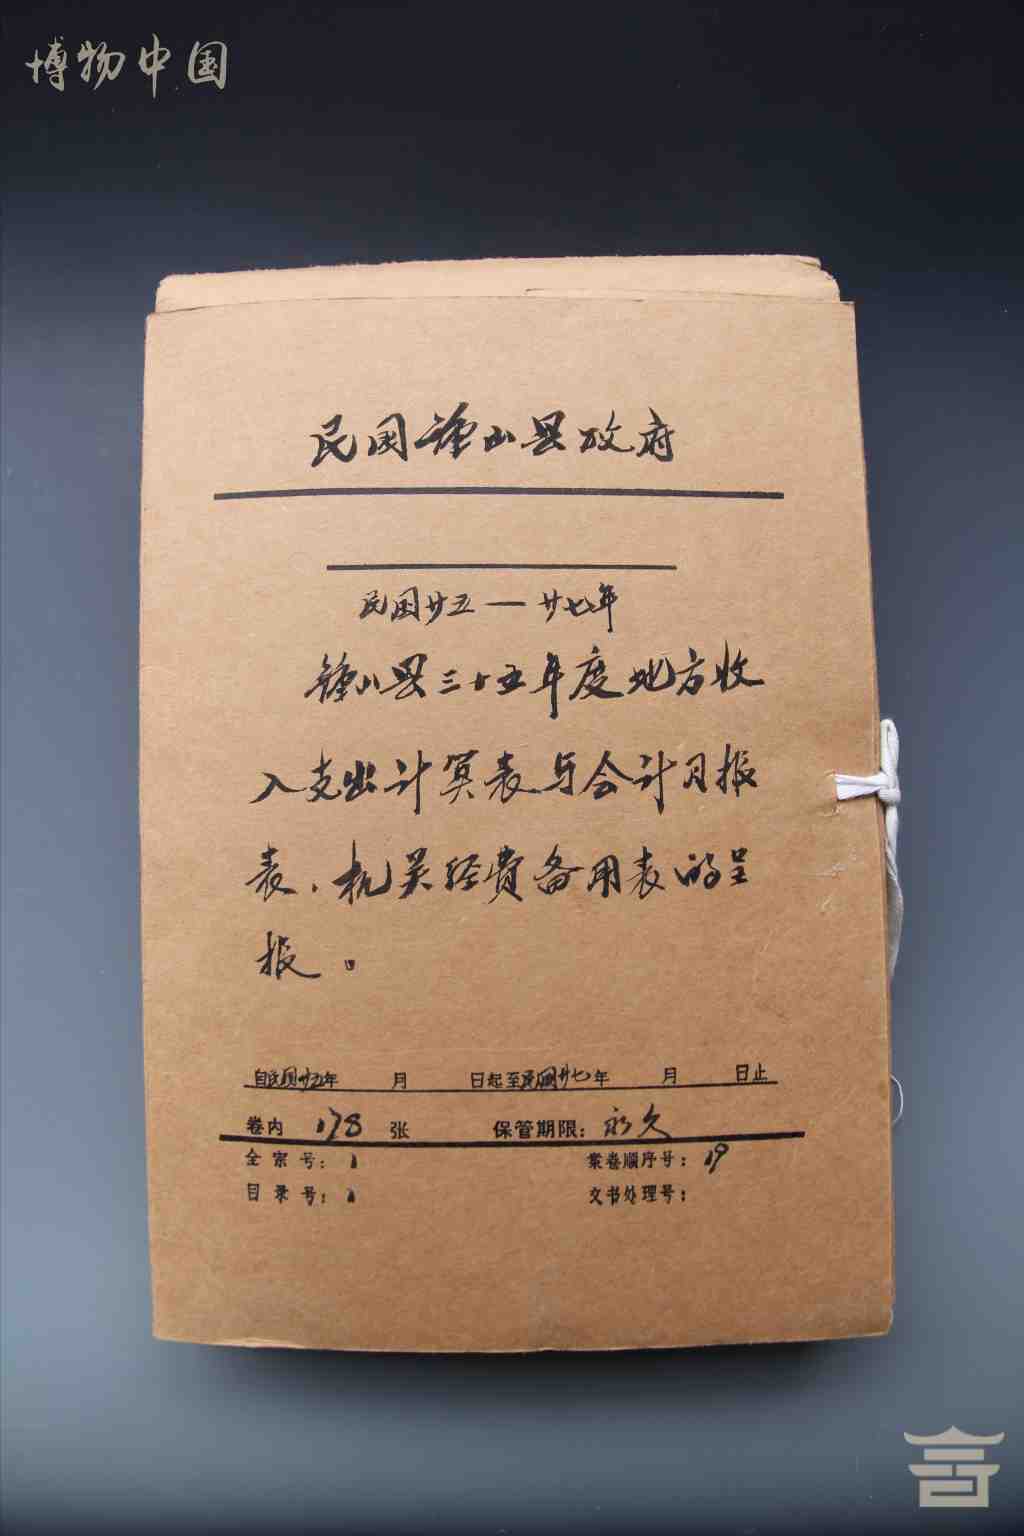 博物中国
民国钟山县政府
民国廿五—廿七年
钟山县二十五年度地方收
入支出计算表与会计月报
表、机关经费备用表的呈
报。
自民国廿五年 月 日起至民国廿七年 月 日止
卷内 178 张 保管期限：永久
全宗号：1 案卷顺序号：19
目录号：1 文书处理号：